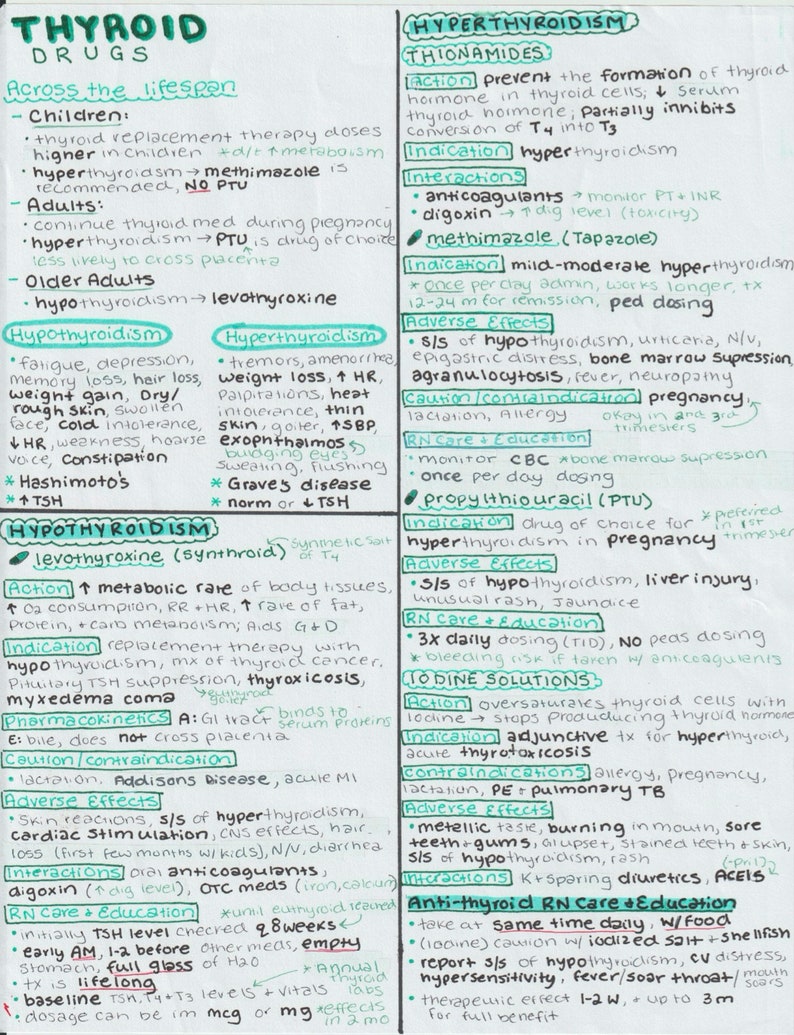 THYROID
DRUGS
Across the lifespan
- Children:
• thyroid replacement therapy doses
higher in children *d/t ↑ metabolism
• hyperthyroidsm → methimazole is
recommended, NO PTU
- Adults:
• continue thyroid med during pregnancy
• hyperthyroidism → PTU is drug of choice
less likely to cross placenta
- Older Adults
• hypothyroidism → levothyroxine
Hypothyroidism
• fatigue, depression,
memory loss, hair loss,
weight gain, Dry/
rough skin, swollen
face, cold intolerance,
↓ HR, weakness, hoarse
voice, constipation
* Hashimoto's
* ↑ TSH
Hyperthyroidism
• tremors, amenorrhea,
weight loss, ↑ HR,
palpitations, heat
intolerance, thin
skin, goiter, ↑SBP,
exophthalmos
budging eyes
sweating, flushing
* Graves disease
* norm or ↓ TSH
HYPOTHYROIDISM
levothyroxine (synthroid) synthetic salt
of T4
Action ↑ metabolic rate of body tissues,
↑ O2 consumption, RR + HR, ↑ rate of fat,
Protein, + carb metabolism; Aids G+D
Indication replacement therapy with
hypothyroidism, mx of thyroid cancer,
Pituitary TSH suppression, thyroxicosis,
myxedema coma → euthyroid
goiter
Pharmacokinetics A: GI tract binds to
serum proteins
E: bile, does not cross placenta
Caution/contraindication
• lactation, Addisons Disease, acute MI
Adverse Effects
• Skin reactions, s/s of hyperthyroidism,
cardiac stimulation, CNS effects, hair
loss (first few months w/ kids), N/V, diarrhea
Interactions oral anticoagulants,
digoxin (↑ dig level), OTC meds (iron, calcium)
RN care + Education *until euthyroid reached
• initially TSH level checked q 8 weeks
• early AM, 1-2 before other meds, empty
stomach, full glass of H2O
• tx is lifelong * Annual
thyroid
labs
• baseline TSH, T4+T3 levels + vitals
• dosage can be im mcg or mg *effects
in 2 mo
HYPERTHYROIDISM
THIONAMIDES
Action prevent the formation of thyroid
hormone in thyroid cells; ↓ serum
thyroid hormone; partially inhibits
conversion of T4 into T3
Indication hyperthyroidism
Interactions
• anticoagulants → monitor PT + INR
• digoxin → ↑ dig level (toxicity)
methimazole (Tapazole)
Indication mild-moderate hyperthyroidism
* once per day admin, works longer, tx
12-24 m for remission, ped dosing
Adverse Effects
• s/s of hypothyroidism, urticaria, N/V,
epigastric distress, bone marrow supression,
agranulocytosis, fever, neuropathy
Caution/contraindication pregnancy,
lactation, Allergy okay in 2nd 3rd
trimesters
RN Care + Education
• monitor CBC *bone marrow supression
• once per day dosing
propylthiouracil (PTU)
Indication drug of choice for * preferred
in 1st
trimester
hyperthyroidism in pregnancy
Adverse Effects
• s/s of hypothyroidism, liver injury,
unusual rash, Jaundice
RN Care + Education
• 3x daily dosing (TID), NO peds dosing
* bleeding risk if taken w/ anticoagulants
IODINE SOLUTIONS
Action oversaturates thyroid cells with
Iodine → stops produducing thyroid hormone
Indication adjunctive tx for hyperthyroid,
acute thyrotoxicosis
contraindications allergy, pregnancy,
lactation, PE + pulmonary TB
Adverse Effects
• metellic taste, burning in mouth, sore
teeth + gums, GI upset, stained teeth + skin,
s/s of hypothyroidism, rash
(-pril)
Interactions K+ sparing diuretics, ACEIs
Anti-thyroid RN Care + Education
• take at same time daily, w/ food
• (iodine) caution w/ iodized salt + shellfish
• report s/s of hypothyroidism, cv distress,
hypersensitivity, fever/soar throat/ mouth
soars
• therapeutic effect 1-2 w, + up to 3m
for full benefit